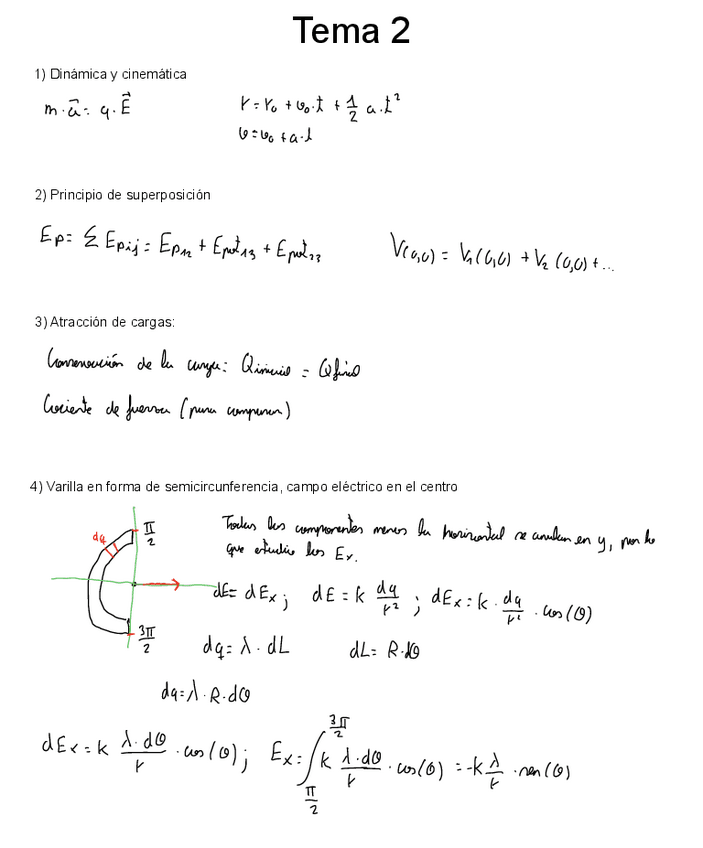 Tema 2
1) Dinámica y cinemática
m·a⃗ = q·E⃗
r = r₀ + v₀·t + 1/2 a·t²
v = v₀ + a·t
2) Principio de superposición
Ep = Σ Epij = Ep₁₂ + Epot₁₃ + Epot₂₃
V(0,0) = V₁(0,0) + V₂(0,0) + ...
3) Atracción de cargas:
Conservación de la carga: Qinicio = Qfinal
Cociente de fuerzas (para comparar)
4) Varilla en forma de semicircunferencia, campo eléctrico en el centro
dq
π/2
3π/2
Todas las componentes menos la horizontal se anulan en y, por lo
que estudio los Ex.
dE = dEx; dE = k dq/r²; dEx = k · dq/r² · cos(θ)
dq = λ · dL
dL = R·dθ
dq = λ·R·dθ
dEx = k λ·dθ/r · cos(θ); Ex = ∫ π/2 3π/2 k λ·dθ/r · cos(θ) = -k λ/r · sen(θ)